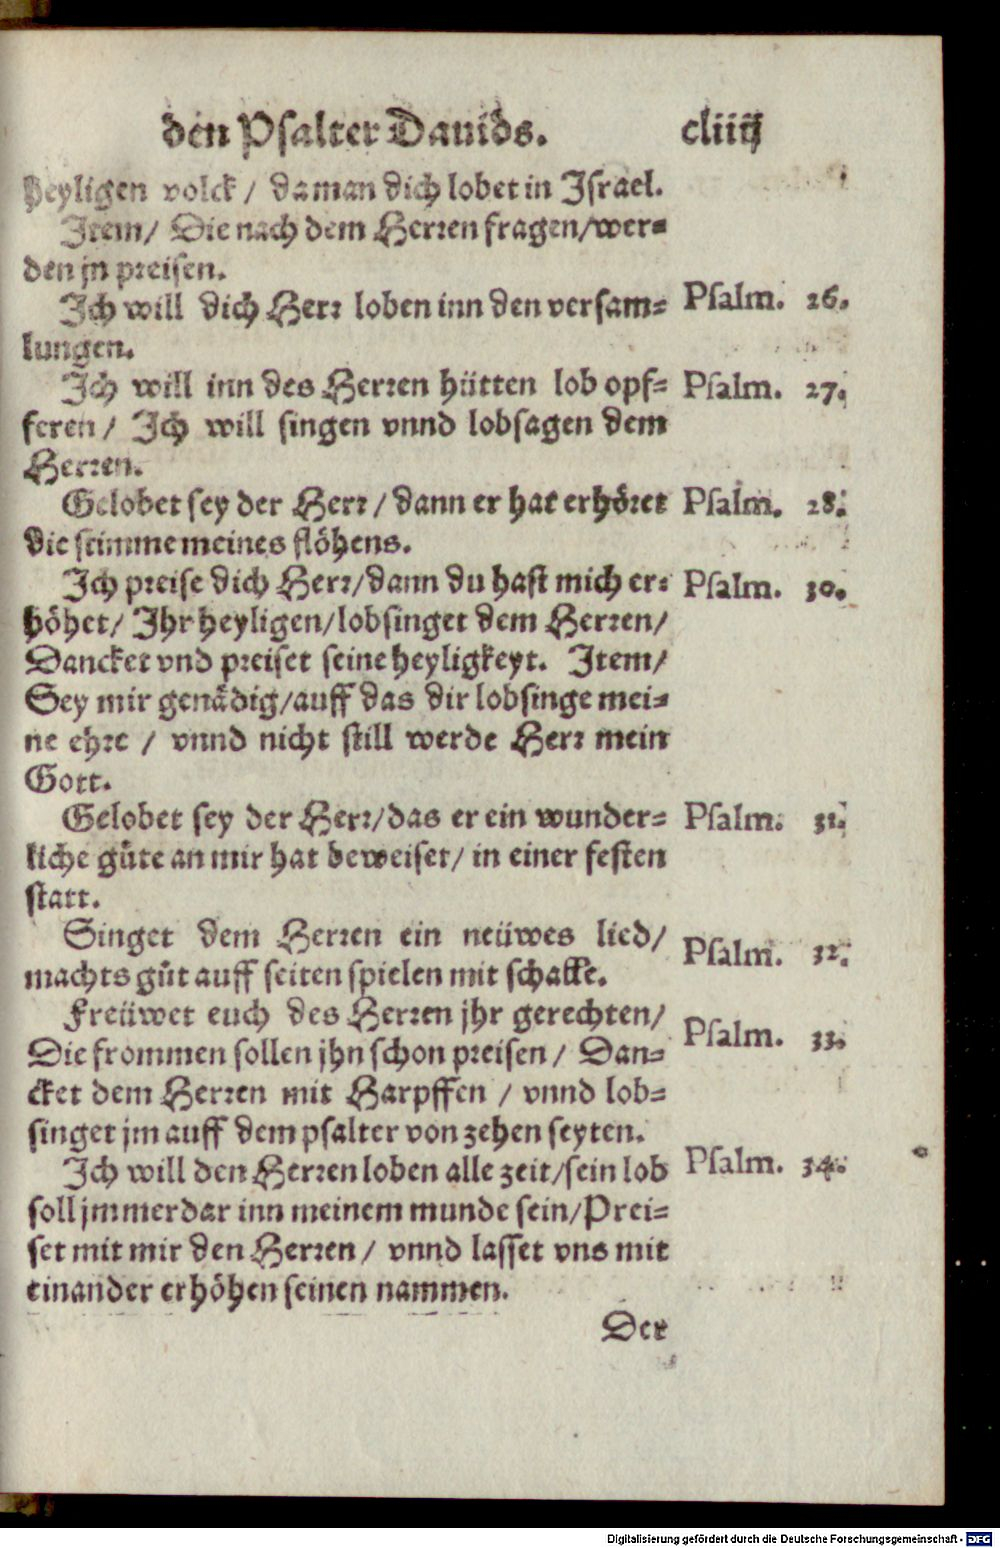 den Psalter Dauids. cliiij
heyligen volck / da man dich lobet in Israel.
Item/ Die nach dem Herren fragen/wer-
den jn preisen.
Ich will dich Herr loben inn den versam- Psalm. 26.
lungen.
Ich will inn des Herren hütten lob opf- Psalm. 27.
feren / Ich will singen vnnd lobsagen dem
Herren.
Gelobet sey der Herr / dann er hat erhöret Psalm. 28.
die stimme meines flöhens.
Ich preise dich Herr/dann du hast mich er- Psalm. 30.
höhet/ Ihr heyligen/lobsinget dem Herren/
Dancket vnd preiset seine heyligkeyt. Item/
Sey mir genädig/auff das dir lobsinge mei-
ne ehre / vnnd nicht still werde Herr mein
Gott.
Gelobet sey der Herr/das er ein wunder- Psalm. 31.
liche güte an mir hat beweiset/ in einer festen
statt.
Singet dem Herren ein neüwes lied/ Psalm. 32.
machts gůt auff seiten spielen mit schalle.
Freüwet euch des Herren jhr gerechten/ Psalm. 33.
Die frommen sollen jhn schon preisen / Dan-
cket dem Herren mit Harpffen / vnnd lob-
singet jm auff dem psalter von zehen seyten.
Ich will den Herren loben alle zeit/sein lob Psalm. 34.
soll jmmerdar inn meinem munde sein/Prei-
set mit mir den Herren / vnnd lasset vns mit
einander erhöhen seinen nammen.
Der
Digitalisierung gefördert durch die Deutsche Forschungsgemeinschaft - DFG